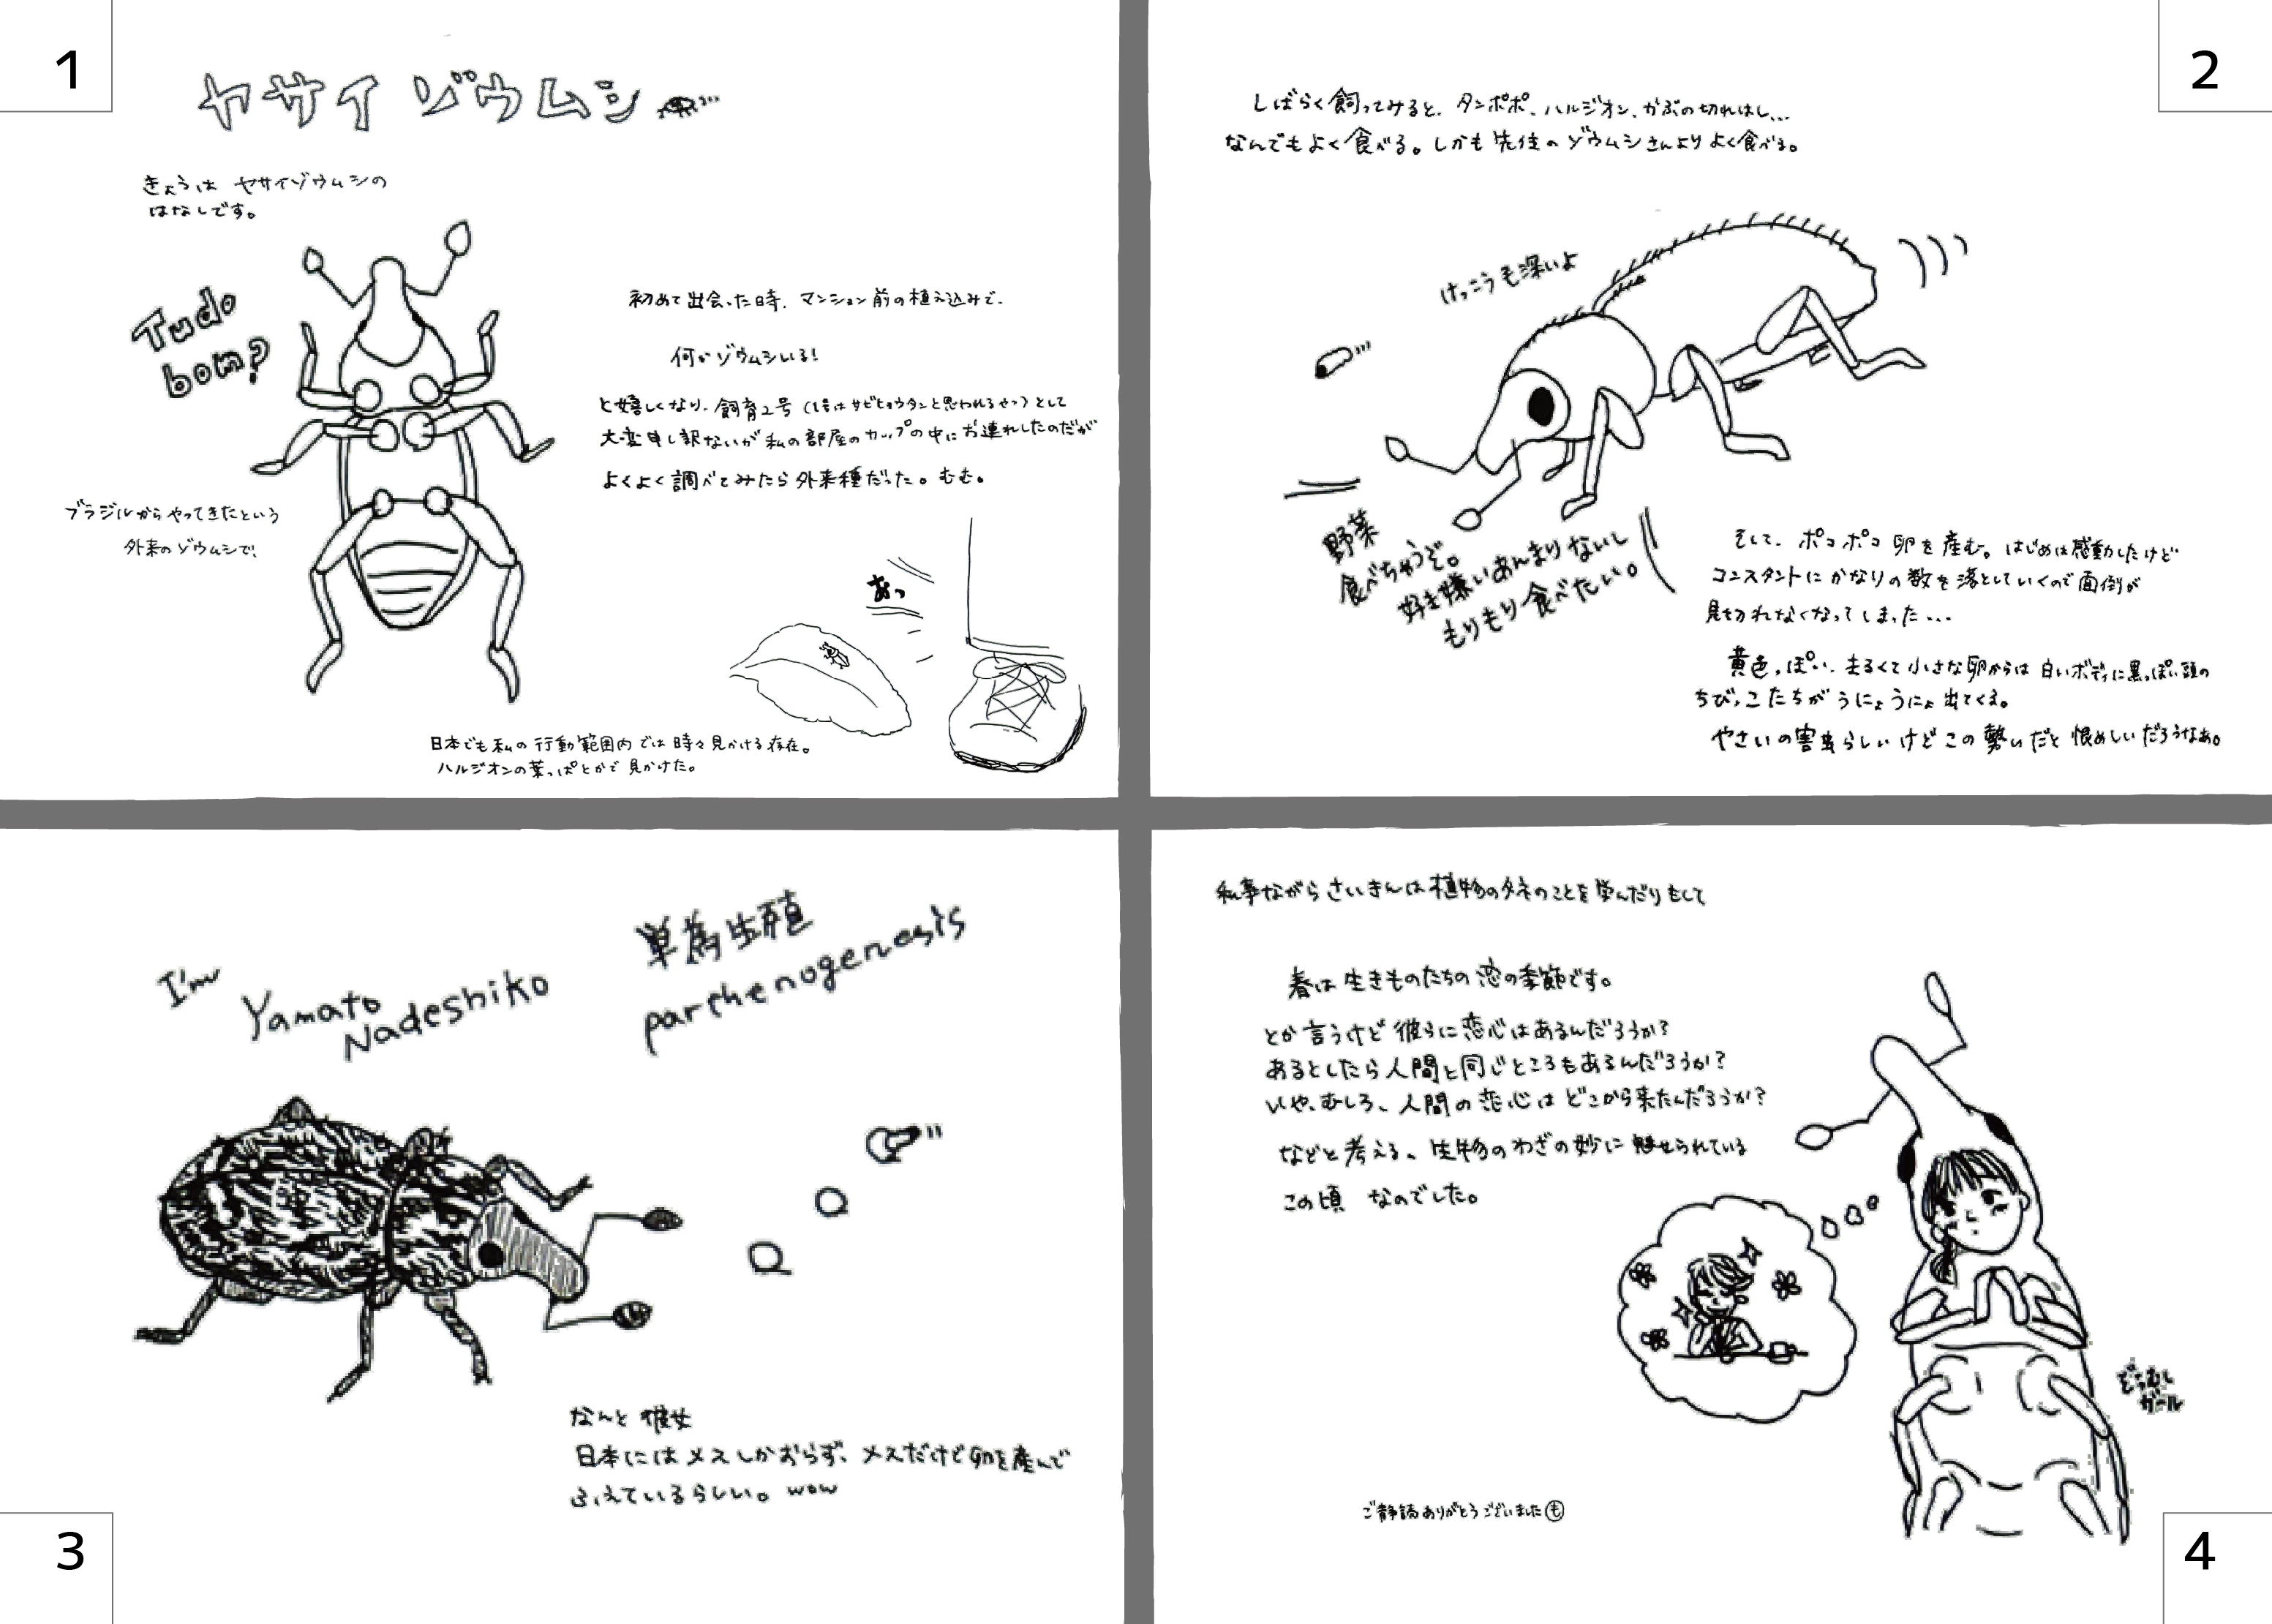 1
ヤサイゾウムシ
きょうは ヤサイゾウムシの
はなしです。
Tudo
bom?
初めて出会った時、マンション前の植え込みで、
何かゾウムシいる!
と嬉しくなり、飼育2号(1号はサビヒョウタンと思われるやつ)として
大変申し訳ないが私の部屋のカップの中にお連れしたのだが
よくよく調べてみたら外来種だった。むむ。
ブラジルからやってきたという
外来のゾウムシで、
あっ
日本でも私の行動範囲内では時々見かける存在。
ハルジオンの葉っぱとかで見かけた。
2
しばらく飼ってみると、タンポポ、ハルジオン、かぶの切れはし...
なんでもよく食べる。しかも先住のゾウムシさんよりよく食べる。
けっこう毛深いよ
野菜
食べちゃうぞ。
好き嫌いあんまりないし
もりもり食べたい。
そして、ポコポコ卵を産む。はじめは感動したけど
コンスタントにかなりの数を落としていくので面倒が
見切れなくなってしまった...
黄色っぽい、まるくて小さな卵からは白いボディに黒っぽい頭の
ちびっこたちがうにょうにょ出てくる。
やさいの害虫らしいけどこの勢いだと恨めしいだろうなあ。
3
I'm
Yamato
Nadeshiko
単為生殖
parthenogenesis
なんと彼女
日本にはメスしかおらず、メスだけど卵を産んで
ふえているらしい。wow
4
私事ながらさいきんは植物の名のことを学んだりもして
春は生きものたちの恋の季節です。
とか言うけど彼らに恋心はあるんだろうか?
あるとしたら人間と同じところもあるんだろうか?
いや、むしろ、人間の恋心はどこから来たんだろうか?
などと考える、生物のわざの妙に魅せられている
この頃 なのでした。
ぞうむし
ガール
ご静読ありがとうございました も